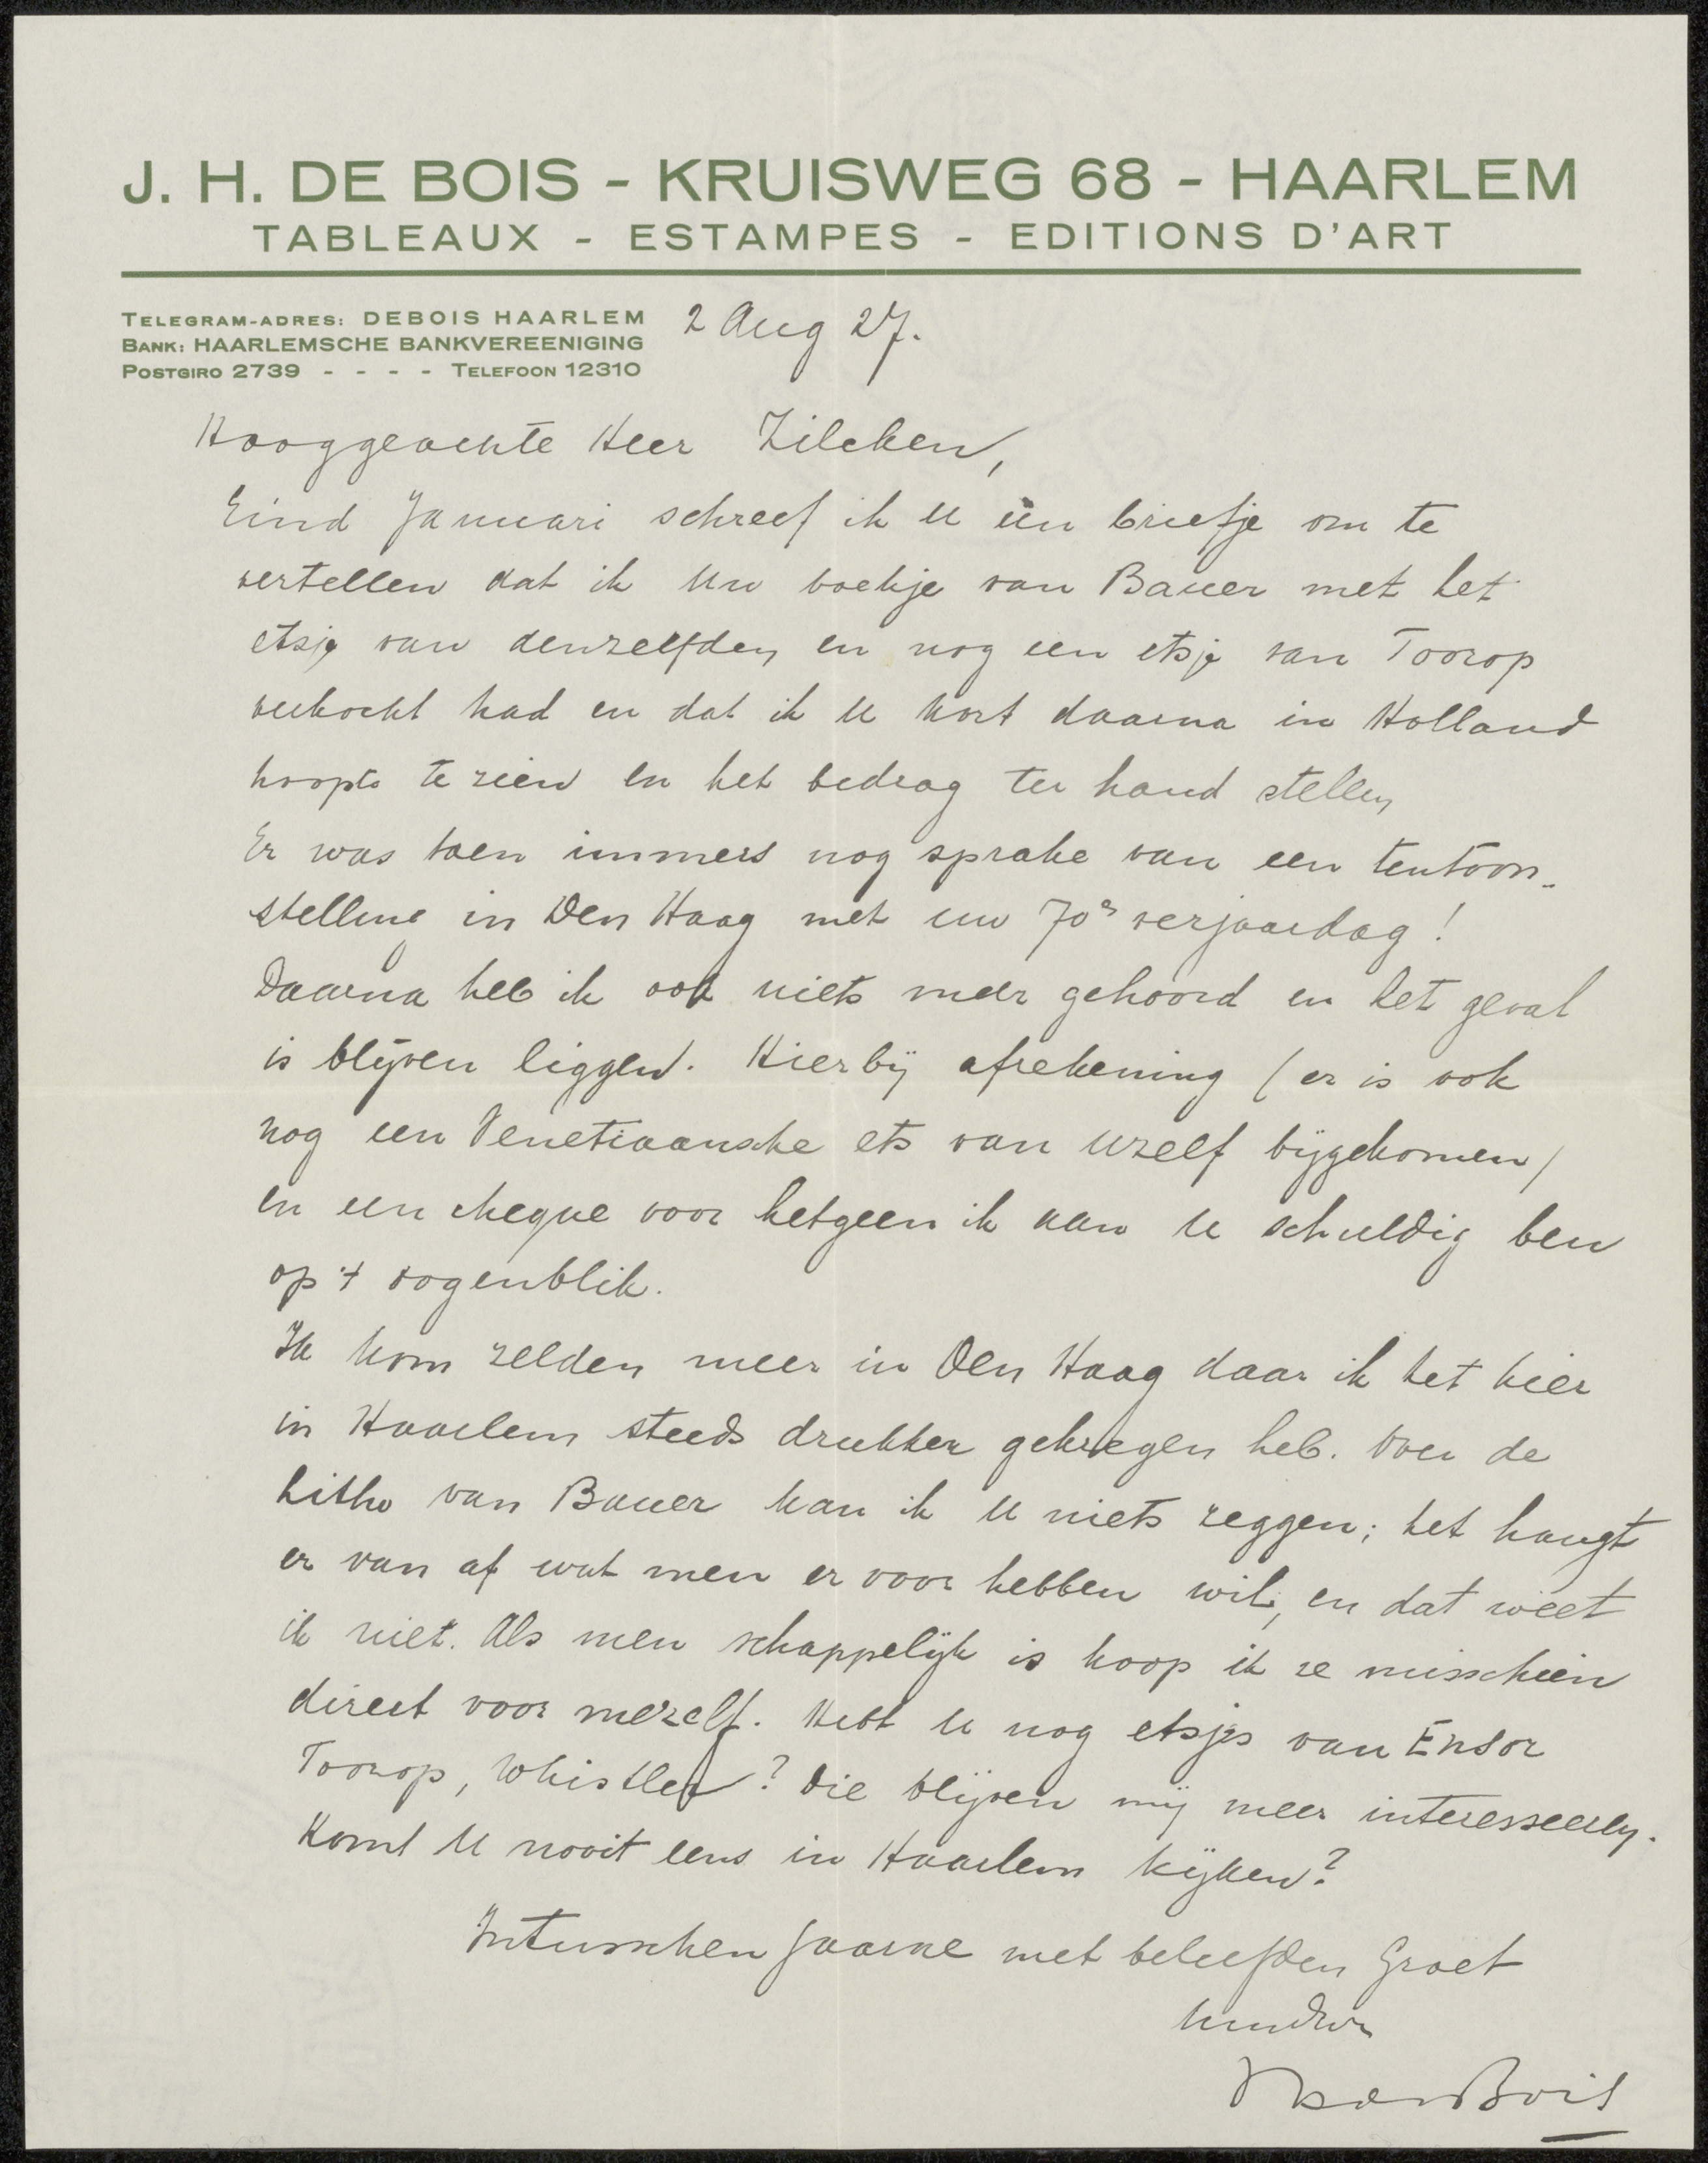 J. H. DE BOIS - KRUISWEG 68 - HAARLEM
TABLEAUX - ESTAMPES - EDITIONS D'ART
TELEGRAM-ADRES: DEBOIS HAARLEM
BANK: HAARLEMSCHE BANKVEREENIGING
POSTGIRO 2739 - - - - TELEFOON 12310
2 Aug 27.
Hooggeachte Heer Zilcken,
Eind Januari schreef ik U een briefje om te
vertellen dat ik Uw boekje van Bauer met het
etsje van denzelfden en nog een etsje van Toorop
verkocht had en dat ik U kort daarna in Holland
hoopte te zien en het bedrag ter hand stellen
Er was toen immers nog sprake van een tentoon-
stelling in Den Haag met uw 70e verjaardag!
Daarna heb ik ook niets meer gehoord en het geval
is blijven liggen. Hierbij afrekening (er is ook
nog een Venetiaansche ets van Uzelf bijgekomen)
en een cheque voor hetgeen ik aan U schuldig ben
op 't oogenblik.
Ik kom zelden meer in Den Haag daar ik het hier
in Haarlem steeds drukker gekregen heb. Over de
Litho van Bauer kan ik U niets zeggen; het hangt
er van af wat men er voor hebben wil, en dat weet
ik niet. Als men schappelijk is koop ik ze misschien
direct voor mezelf. Hebt U nog etsjes van Ensor
Toorop, Whistler? Die blijven mij meer interesseeren.
Komt U nooit eens in Haarlem kijken?
Intusschen gaarne met beleefden Groet
Uw dw
JHdeBois